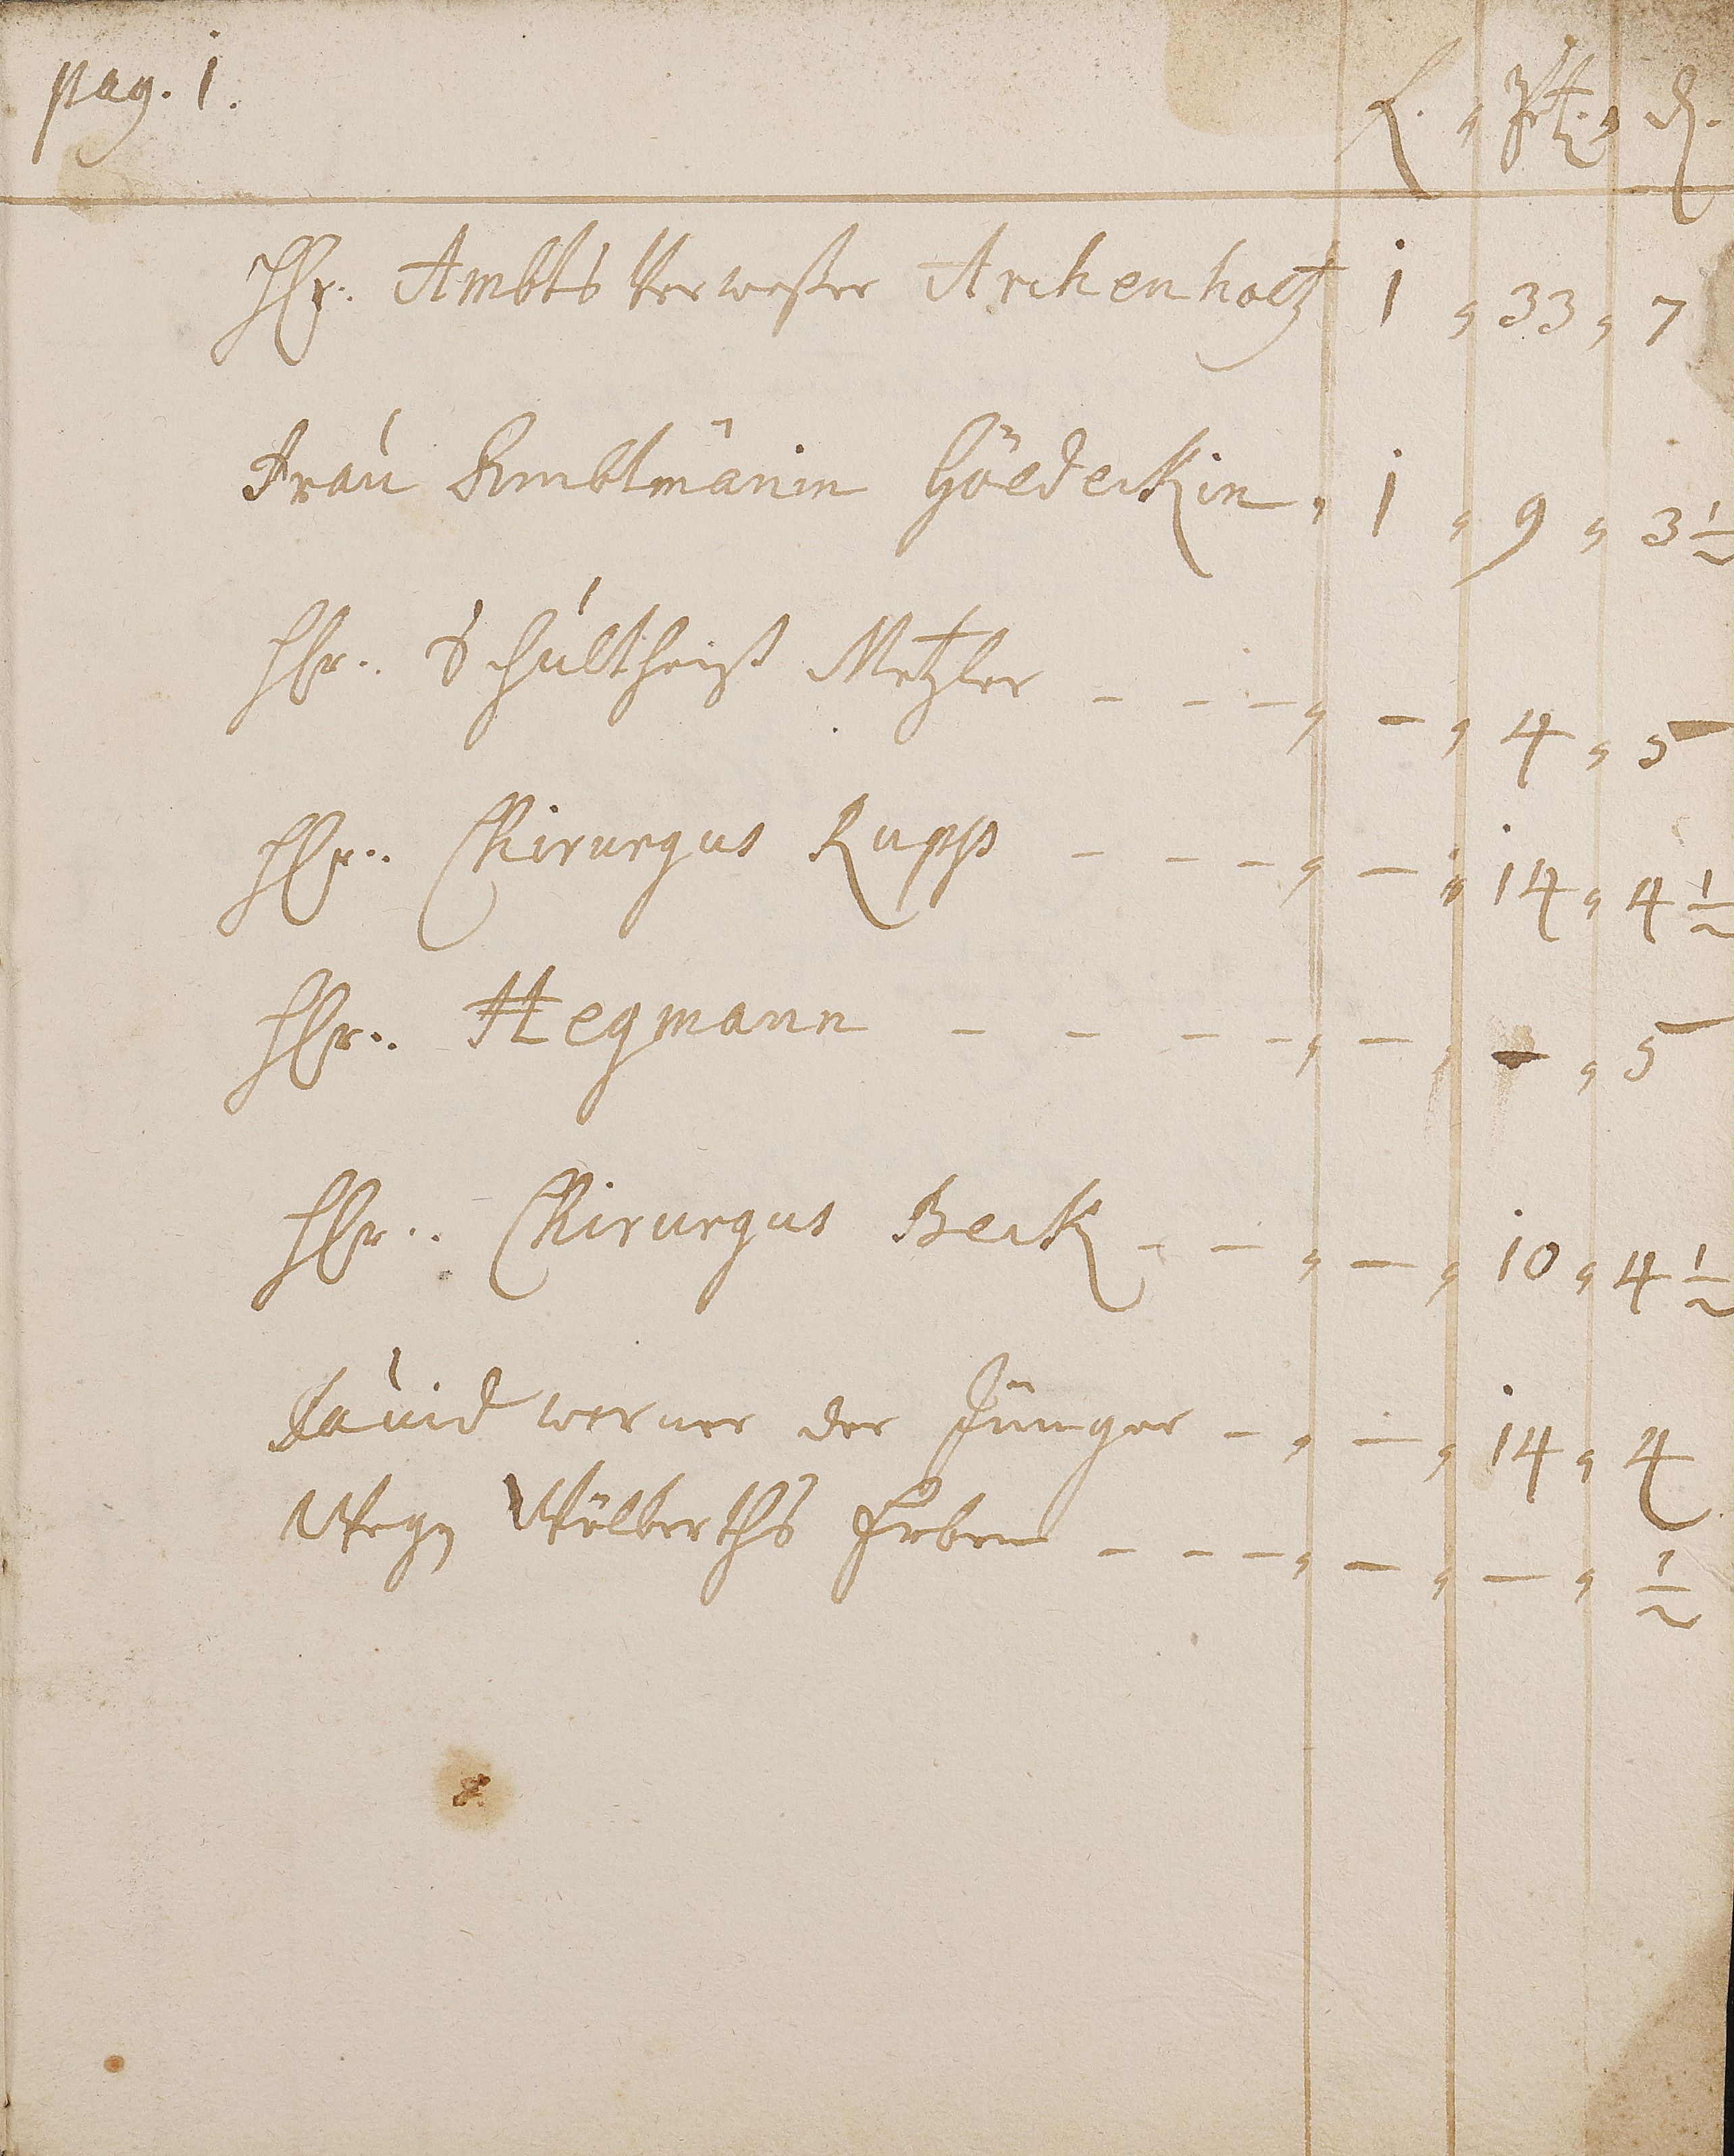 pag. 1.
f. " Xr. " d.
Hr. Ambts Verweßer Archenholtz 1 " 33 " 7
Frau Ambtmänin Göedeckin, 1 " 9 " 3 1/2
Hr. Schultheiß Metzler - - - " - " 4 " 5
Hr. Chirurgus Rupp - - - " - " 14 " 4 1/2
Hr. Hegmann - - - - " - " - " 5
Hr. Chirurgus Beck - - " - " 10 " 4 1/2
David Werner der Jünger - " - " 14 " 4
Weyn Wölberths Erben - - - " - " - " 1/2